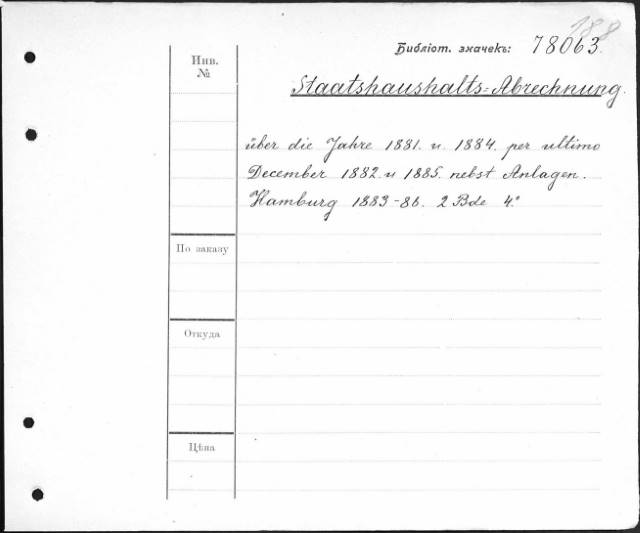 188
Библіот. значекъ: 78063.
Инв.
№
Staatshaushalts-Abrechnung.
über die Jahre 1881. u. 1884. per ultimo
December 1882. u 1885. nebst Anlagen.
Hamburg 1883-86. 2 Bde 4°
По заказу
Откуда
Цѣна